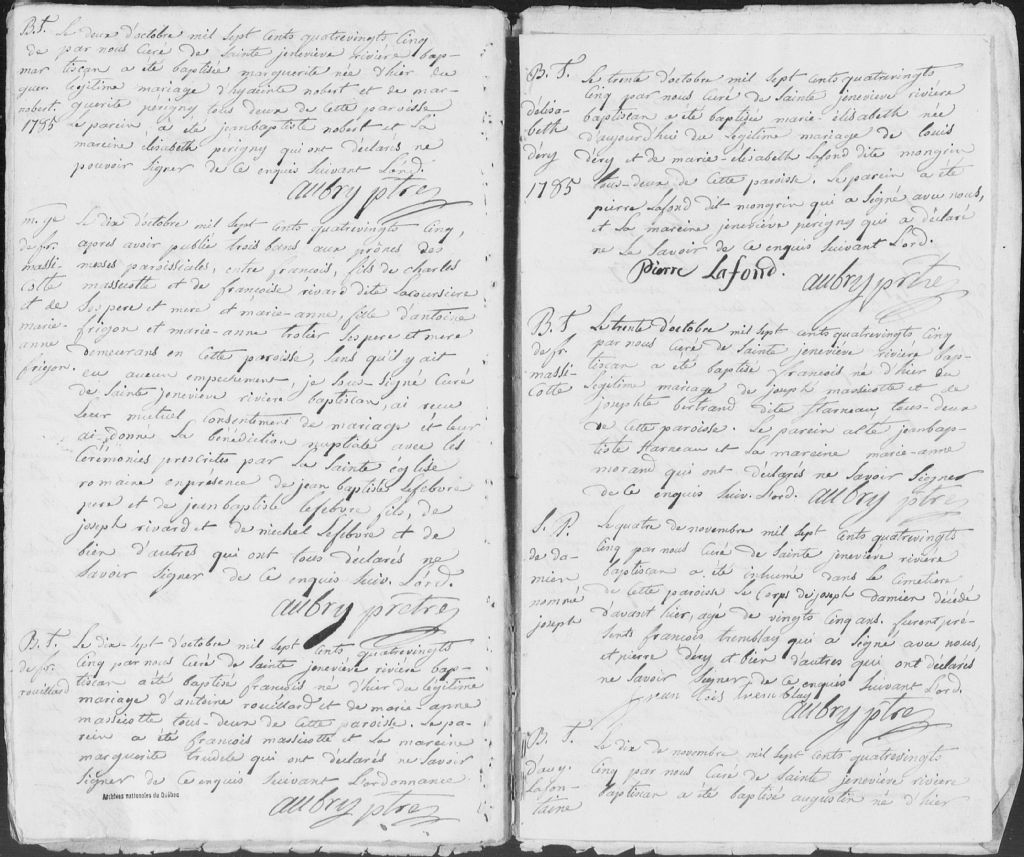 B.T.
de
mar
guer.
nobert.
1785
Le deux d'octobre mil sept cents quatrevingts Cinq
par nous Curé de Sainte jeneviève rivière bap-
tiscan a été baptisée marguerite née d'hier du
legitime mariage d'hyacinte nobert et de mar-
guerite perigny tous deux de Cette paroisse
Le parein a été jeanbaptiste nobert et la
mareine élisabeth perigny qui ont déclarés ne
pouvoir Signer de Ce enquis Suivant Lord.
aubry ptre
m. ge
de fr.
massi-
cotte
et de
marie-
anne
frigon.
Le dix d'octobre mil sept Cents quatrevingts Cinq,
apres avoir publié trois bans aux prônes des
messes paroissiales, entre françois, fils de charles
massicotte et de françoise rivard dite Lacoursière
Ses pere et mere et marie-anne, fille d'antoine
frigon et marie-anne trotier Ses pere et mere
demeurans en Cette paroisse, Sans qu'il y ait
eu aucun empechement, je Sous-Signé Curé
de Sainte jeneviève rivière baptiscan, ai recu
Leur mutuel Consentement de mariage et leur
ai donné La bénédiction nuptiale avec les
Cérémonies prescrites par La Sainte église
romaine en presence de jean baptiste Lefebvre
pere et de jean baptiste lefebvre fils, de
joseph rivard et de michel Lefebvre et de
bien d'autres qui ont tous déclarés ne
Savoir Signer de Ce enquis Suiv. Lord.
aubry prêtre
B. T.
de fr.
rouillard
Le dix-Sept d'octobre mil Sept Cents quatrevingts
Cinq par nous Curé de Sainte jeneviève rivière bap-
tiscan a été baptisé françois né d'hier du légitime
mariage d'antoine rouillard et de marie-anne
massicotte tous-deux de Cette paroisse. Le pa-
rein a été françois massicotte et La mareine
marguerite trudele qui ont déclarés ne Savoir
Signer de Ce enquis Suivant L'ordonnance.
aubry ptre
Archives nationales du Québec
B. T.
d'élisa-
beth
déry
1785
Le trente d'octobre mil Sept Cents quatrevingts
Cinq par nous Curé de Sainte jeneviève rivière
baptiscan a été baptisée marie-élisabeth née
d'aujourd'hui du Légitime mariage de Louis
déry et de marie-élisabeth Lafond dite mongrin
tous-deux de Cette paroisse. Le parein a été
pierre Lafond dit mongrin qui a Signé avec nous,
et La mareine jeneviève perigny qui a déclaré
ne Le Savoir de Ce enquis Suivant Lord.
Pierre Lafond.
aubry ptre
B. T
de fr.
massi-
Cotte
Le trente d'octobre mil Sept Cents quatrevingts Cinq
par nous Curé de Sainte jeneviève rivière bap-
tiscan a été baptisé françois né d'hier du
Légitime mariage de joseph massicotte et de
josephte bertrand dite flarneau, tous-deux
de Cette paroisse. Le parein a été jeanbap-
tiste flarneau et La mareine marie-anne
morand qui ont déclarés ne Savoir Signer
de Ce enquis Suiv. Lord.
aubry ptre
S. P.
de da-
mien
nommé
joseph
Le quatre de novembre mil Sept Cents quatrevingts
Cinq par nous Curé de Sainte jeneviève rivière
baptiscan a été inhumé dans Le Cimetière
de Cette paroisse Le Corps de joseph damien décédé
d'avant hier, agé de vingts Cinq ans. furent pré-
Sents françois tremblay qui a Signé avec nous,
et pierre déry et bien d'autres qui ont déclarés
ne Savoir Signer de Ce enquis Suivant Lord.
fran cois tremblay
aubry ptre
B. T.
d'aug.
Lafon-
taine
Le dix de novembre mil Sept Cents quatrevingts
Cinq par nous Curé de Sainte jeneviève rivière
baptiscan a été baptisé augustin né d'hier